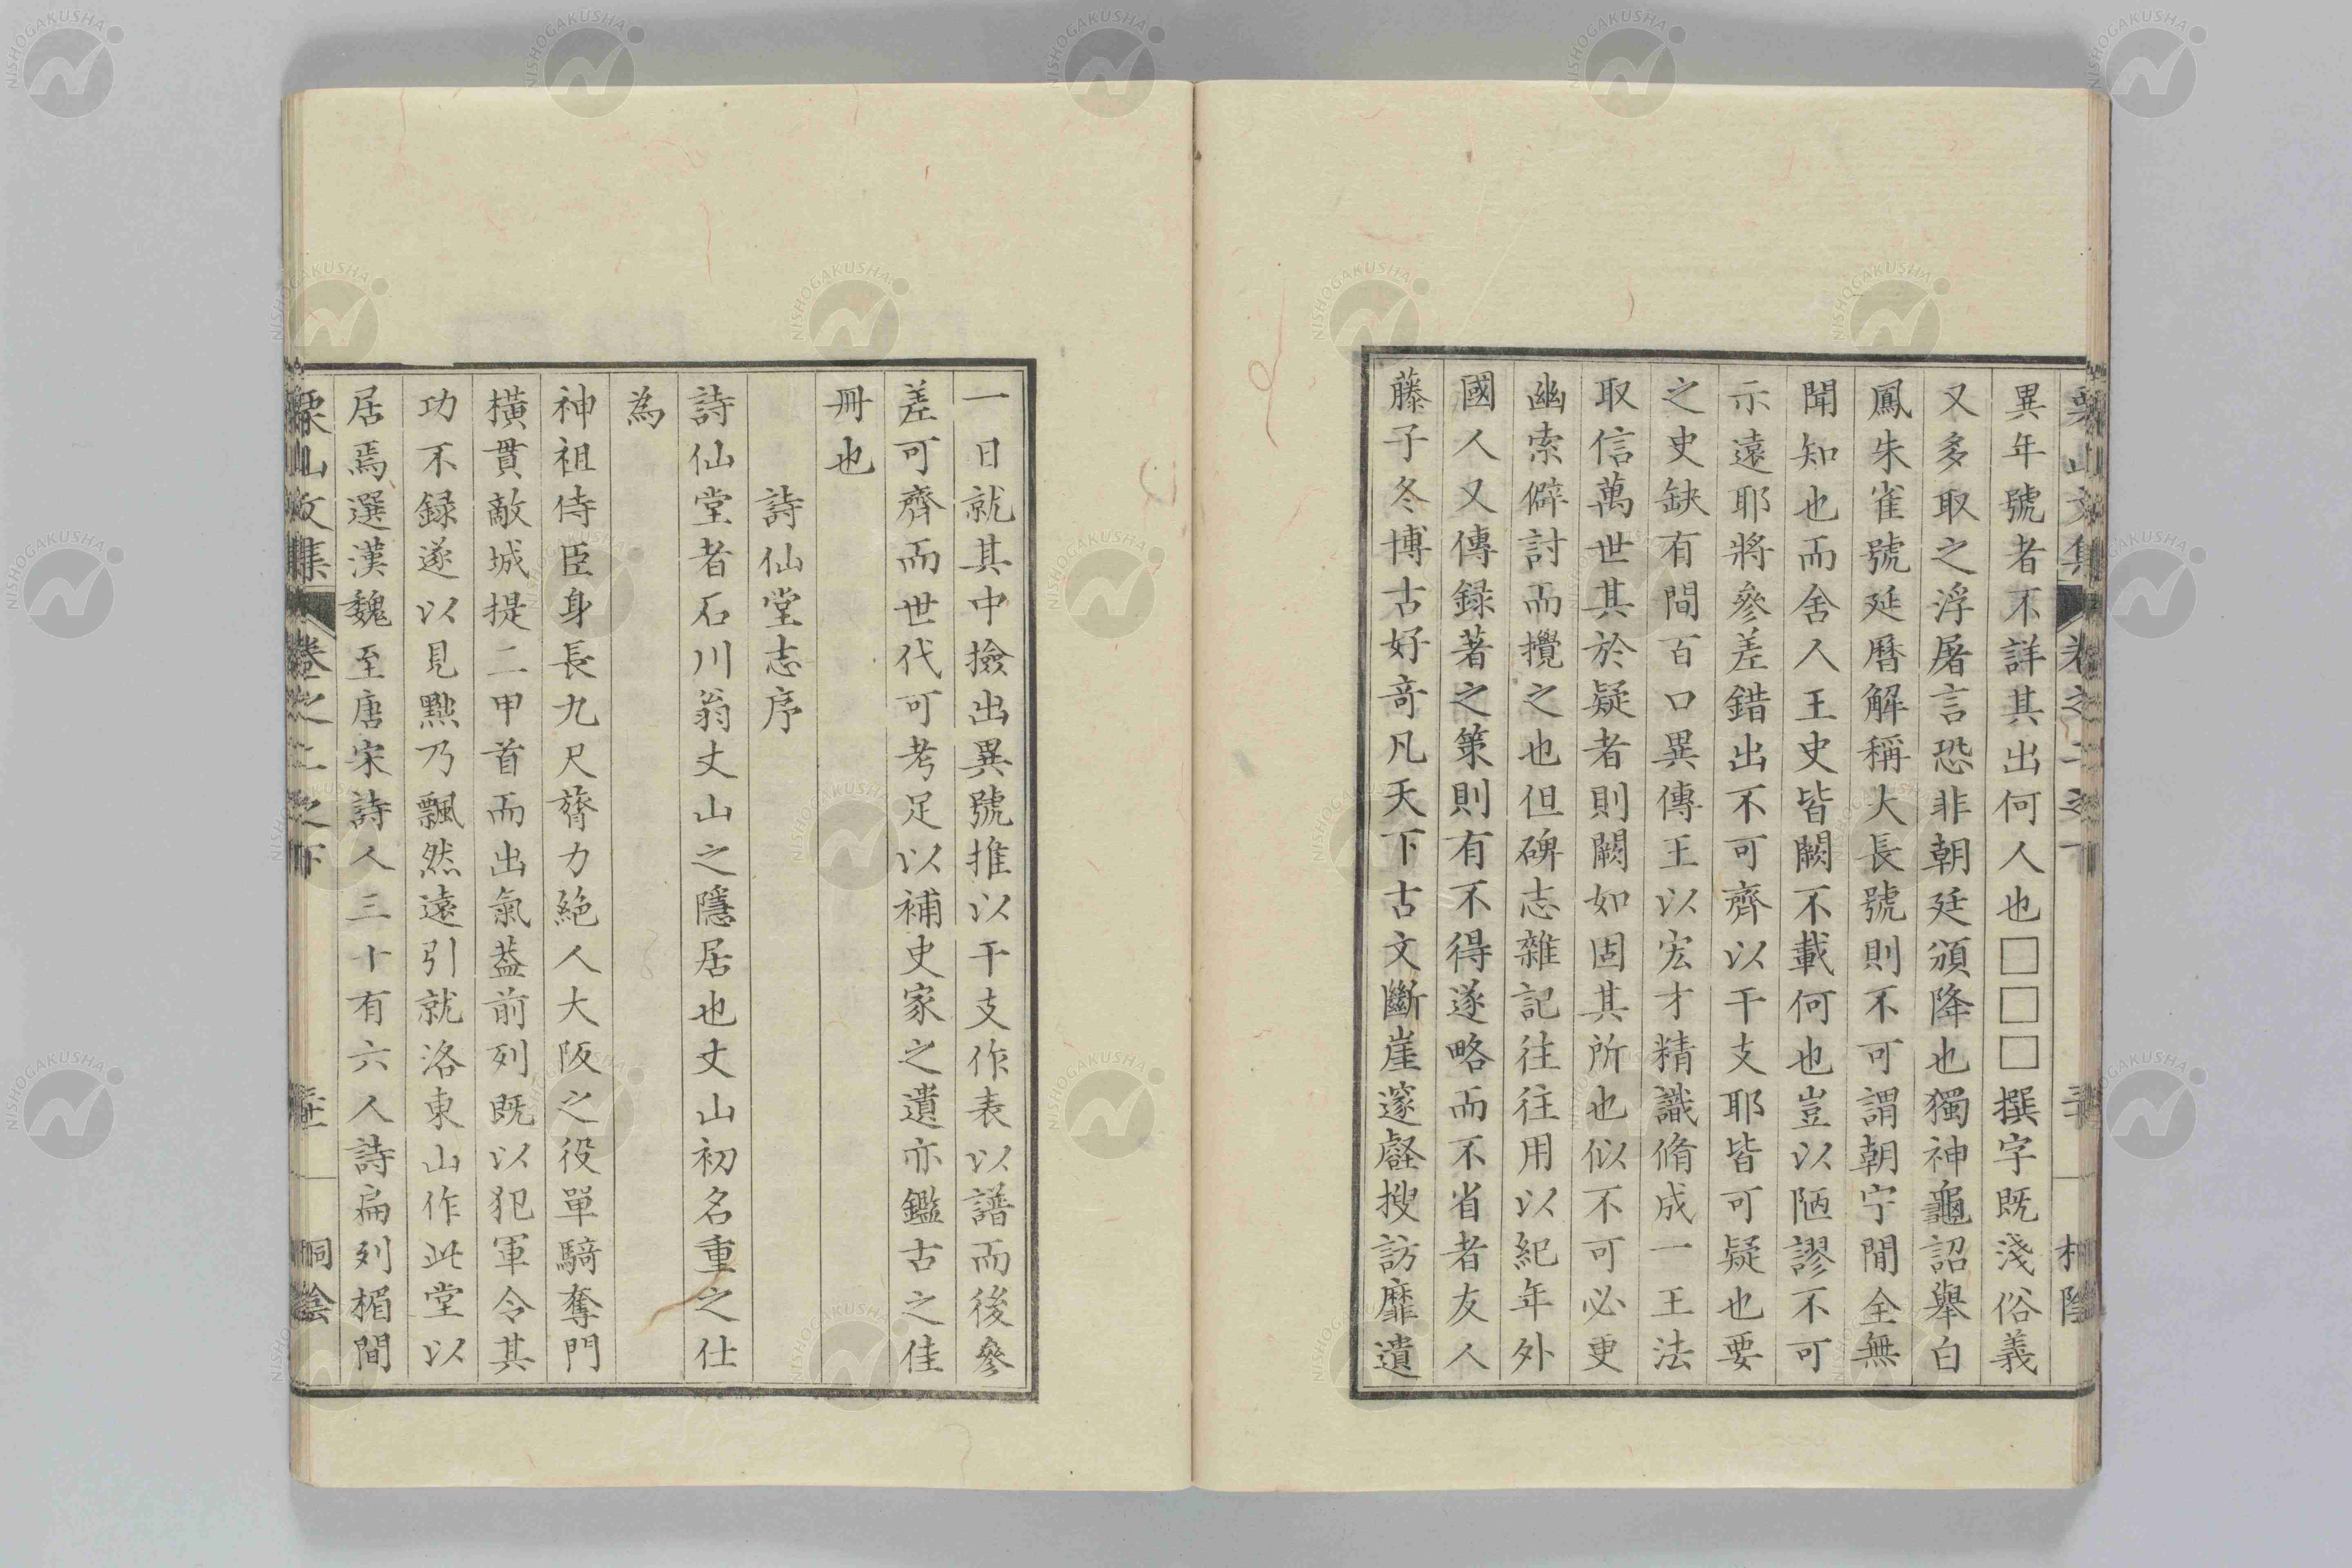 異年號者不詳其出何人也□□□撰字既淺俗義
又多取之浮屠言恐非朝廷頒降也獨神龜詔舉白
鳳朱雀號延曆解稱大長號則不可謂朝宁閒全無
聞知也而舍人王史皆闕不載何也豈以陋謬不可
示遠耶將參差錯出不可齊以干支耶皆可疑也要
之史缺有間百口異傳王以宏才精識脩成一王法
取信萬世其於疑者則闕如固其所也似不可必更
幽索僻討而攪之也但碑志雜記往往用以紀年外
國人又傳録著之策則有不得遂略而不省者友人
藤子冬博古好奇凡天下古文斷崖邃壑搜訪靡遺
一日就其中撿出異號推以干支作表以譜而後參
差可齊而世代可考足以補史家之遺亦鑑古之佳
冊也
詩仙堂志序
詩仙堂者石川翁丈山之隱居也丈山初名重之仕
為
神祖侍臣身長九尺膂力絕人大阪之役單騎奪門
橫貫敵城提二甲首而出氣蓋前列既以犯軍令其
功不録遂以見黜乃飄然遠引就洛東山作此堂以
居焉選漢魏至唐宋詩人三十有六人詩扁列楣間
栗山文集 卷之二之下 桐陰